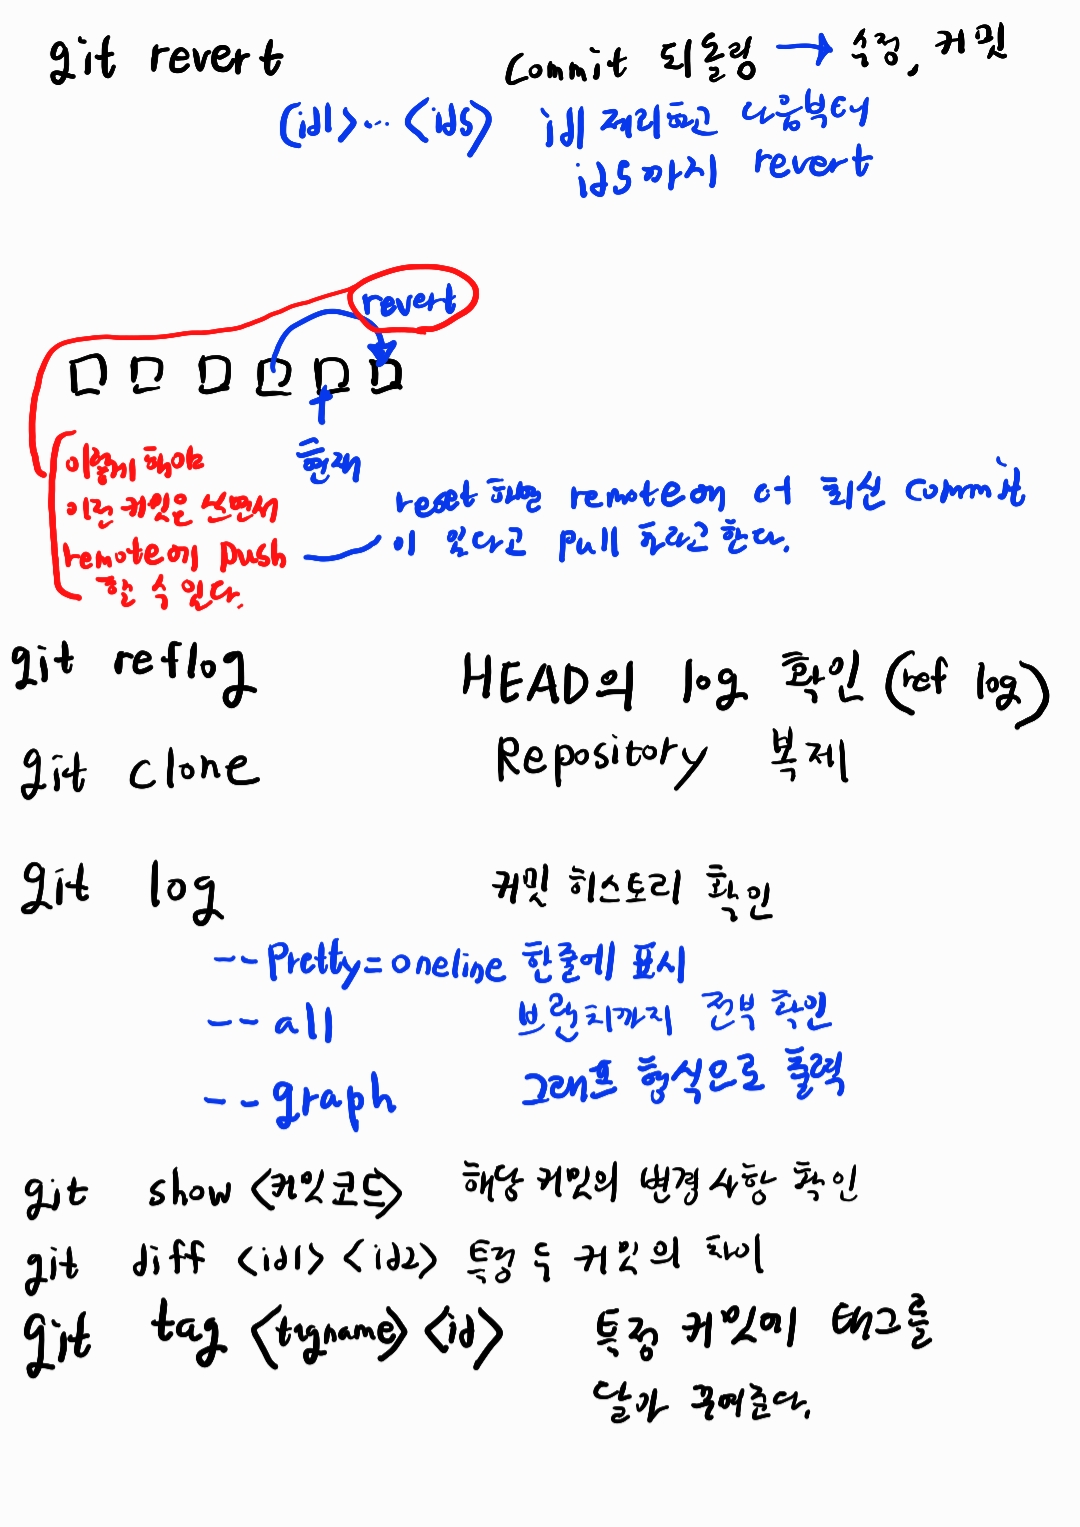 git revert commit 되돌림 → 수정, 커밋
<id1>... <id5> id1 제외하고 다음부터
id5까지 revert
revert
현재
이렇게 해야
이런 커밋은 쓰면서
remote에 push
할 수 있다.
reset 하면 remote에 더 최신 commit
이 있다고 pull 하라고 한다.
git reflog HEAD의 log 확인 (ref log)
git clone Repository 복제
git log 커밋 히스토리 확인
--pretty=oneline 한줄에 표시
--all 브랜치까지 전부 확인
--graph 그래프 형식으로 출력
git show <커밋코드> 해당 커밋의 변경사항 확인
git diff <id1> <id2> 특정 두 커밋의 차이
git tag <tagname> <id> 특정 커밋에 태그를
달아